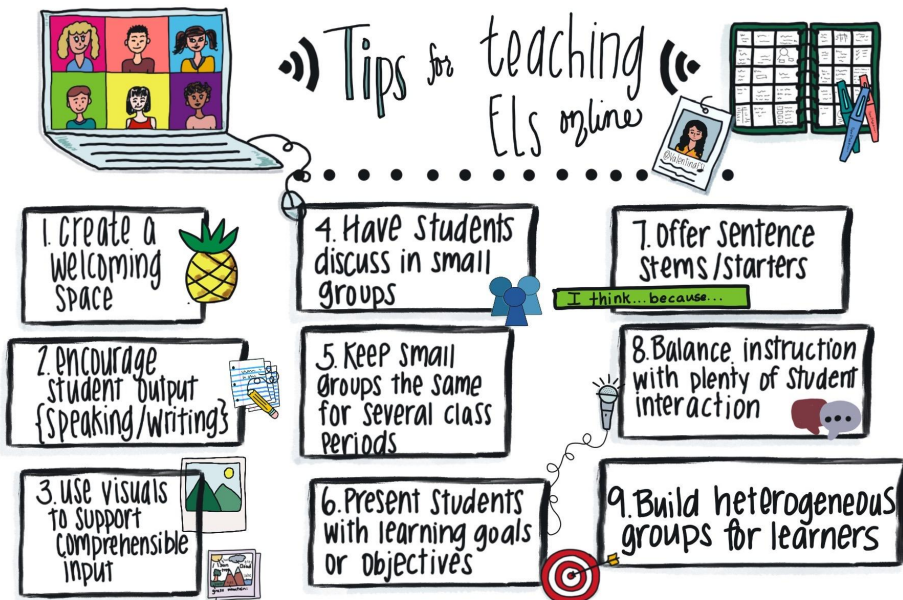 Tips for teaching
ELs online
@ValentinaESL
1. Create a
welcoming
space
2. encourage
student output
{speaking/writing}
3. use visuals
to support
comprehensible
input
4. Have Students
discuss in small
groups
5. Keep small
groups the same
for several class
periods
6. Present Students
with learning goals
or objectives
7. Offer Sentence
Stems/starters
I think... because...
8. Balance instruction
with plenty of Student
interaction
9. Build heterogeneous
groups for learners